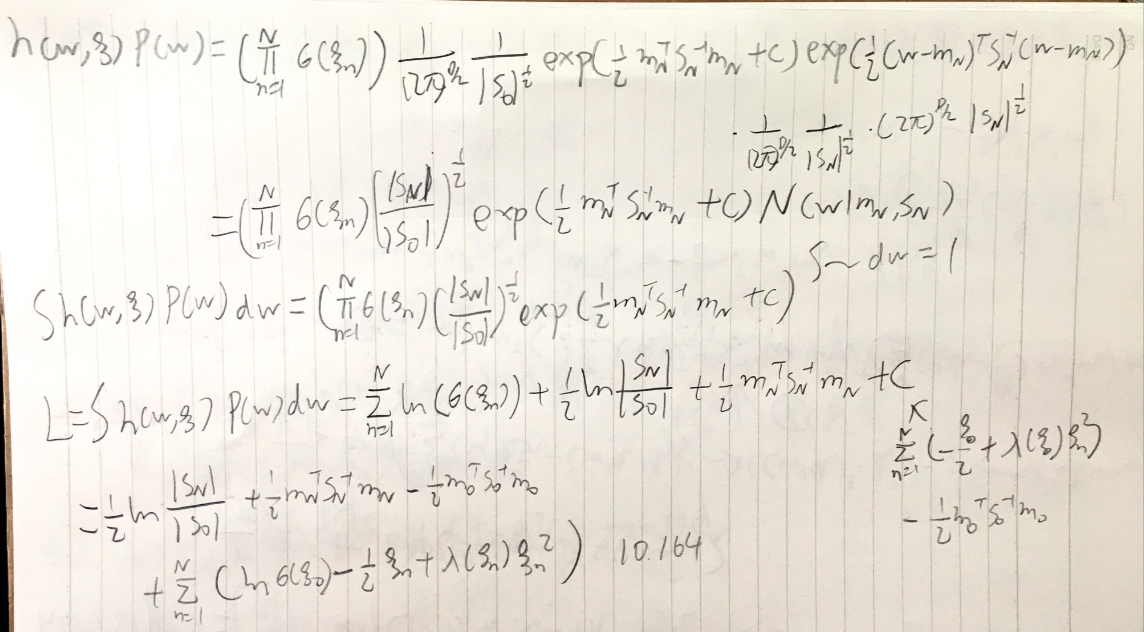 h(w,ξ) P(w) = (∏_{n=1}^{N} σ(ξn)) 1/(2π)^{D/2} 1/|S0|^{1/2} exp(1/2 mN^T SN^{-1} mN + C) exp(1/2 (w-mN)^T SN^{-1} (w-mN))
· 1/(2π)^{D/2} 1/|SN|^{1/2} · (2π)^{D/2} |SN|^{1/2}
= (∏_{n=1}^{N} σ(ξn) (|SN|/|S0|)^{1/2} exp(1/2 mN^T SN^{-1} mN + C) N(w|mN, SN)
∫~ dw = 1
∫h(w,ξ) P(w) dw = (∏_{n=1}^{N} σ(ξn) (|SN|/|S0|)^{1/2} exp(1/2 mN^T SN^{-1} mN + C)
L = ∫ h(w,ξ) P(w) dw = Σ_{n=1}^{N} ln(σ(ξn)) + 1/2 ln |SN|/|S0| + 1/2 mN^T SN^{-1} mN + C
Σ_{n=1}^{N} (-ξn/2 + λ(ξ) ξn^2)
- 1/2 m0^T S0^{-1} m0
= 1/2 ln |SN|/|S0| + 1/2 mN^T SN^{-1} mN - 1/2 m0^T S0^{-1} m0
+ Σ_{n=1}^{N} (ln σ(ξn) - 1/2 ξn + λ(ξn) ξn^2) 10.164